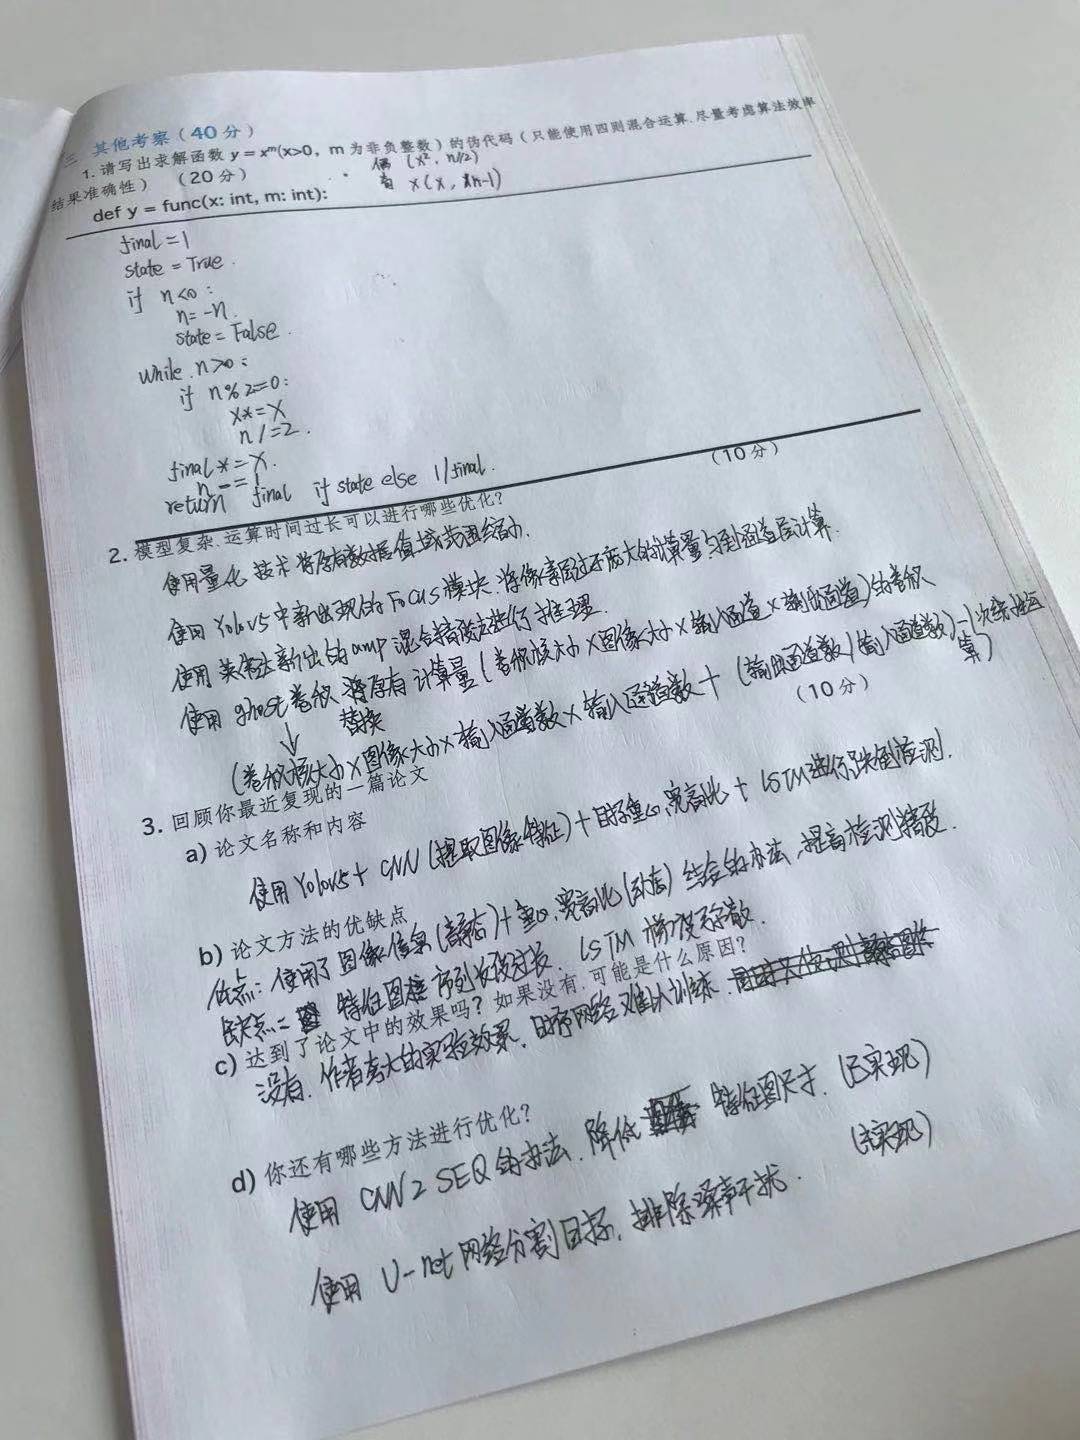 三 其他考察（40 分）
1. 请写出求解函数 y = xᵐ(x>0, m 为非负整数) 的伪代码（只能使用四则混合运算, 尽量考虑算法效率
结果准确性） （20 分）
偶 (x², n/2)
奇 x(x, n-1)
def y = func(x: int, m: int):
final = 1
state = True.
if n<0:
n = -n.
state = False.
while n>0:
if n%2=0:
x*=x
n/=2.
final*=x.
n-=1
return final if state else 1/final.
（10 分）
2. 模型复杂, 运算时间过长可以进行哪些优化?
使用量化技术将原有数据值域范围缩小.
使用 Yolov5 中新出现的 Focus 模块, 将像素层过于庞大的计算量匀到通道层计算.
使用英伟达新出的 amp 混合精度进行推理.
使用 ghost 卷积 将原有计算量（卷积核大小×图像大小×输入通道×输出通道）的卷积
替换
（卷积核大小×图像大小×输入通道数×输入通道数+（输出通道数/输入通道数）-1次线性运算）
（10 分）
3. 回顾你最近复现的一篇论文
a) 论文名称和内容
使用 Yolov5+ CNN (提取图像特征)+目标重心, 宽高比 + LSTM进行跌倒检测.
b) 论文方法的优缺点
优点: 使用了图像信息(静态)+重心, 宽高比(动态) 结合的办法, 提高检测精度.
缺点: 特征图 序列长度过长, LSTM 梯度弥散.
c) 达到了论文中的效果吗? 如果没有, 可能是什么原因?
没有, 作者夸大的实验效果, 时序网络难以训练.
d) 你还有哪些方法进行优化?
使用 CNN2SEQ 的办法, 降低 特征图尺寸. (已实现)
使用 U-net 网络分割目标, 排除噪声干扰. (未实现)